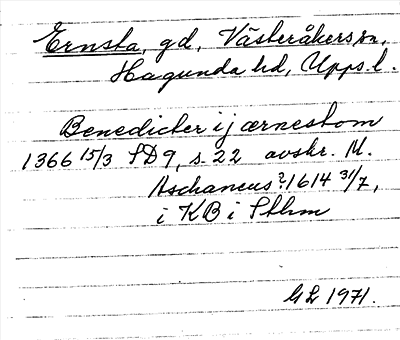 Ernsta, gd, Västeråkers sn,
Hagunda hd, Upps. l.
Benedicter ij ærnestom
1366 15/3 SD 9, s. 22 avskr. M.
Aschaneus ? 1614 31/7,
i KB i Sthm
GL 1971.